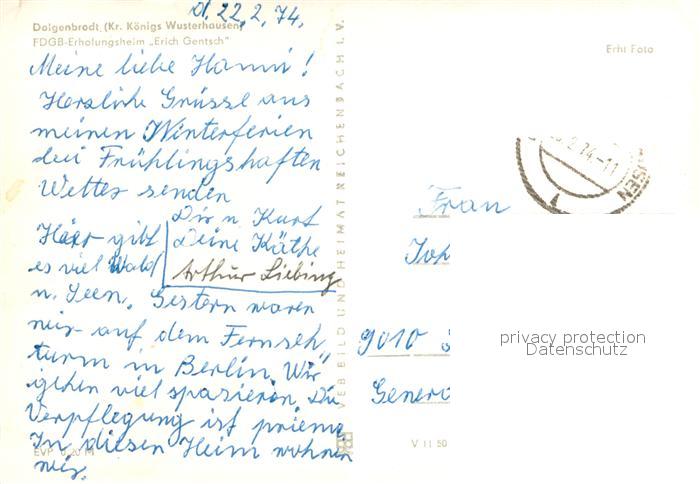 d. 22.2.74.
Dolgenbrodt (Kr. Königs Wusterhausen)
FDGB-Erholungsheim „Erich Gentsch"
Erhl Foto
Meine liebe Hanni!
Herzliche Grüsse aus
meinen Winterferien
bei Frühlingshaften
Wetter senden
Dir u. Kurt
Deine Käthe
Arthur Liebing
Hier gibt
es viel Wald
u. Seen. Gestern waren
wir auf dem Fernseh
turm in Berlin. Wir
gehen viel spazieren. Die
Verpflegung ist prima
In diesem Heim wohnen
wir.
EVP 0,20 M
VEB BILD UND HEIMAT REICHENBACH I. V.
V 11 50
2.74-11
USEN
Frau
Joh
9010
Genera
privacy protection
Datenschutz